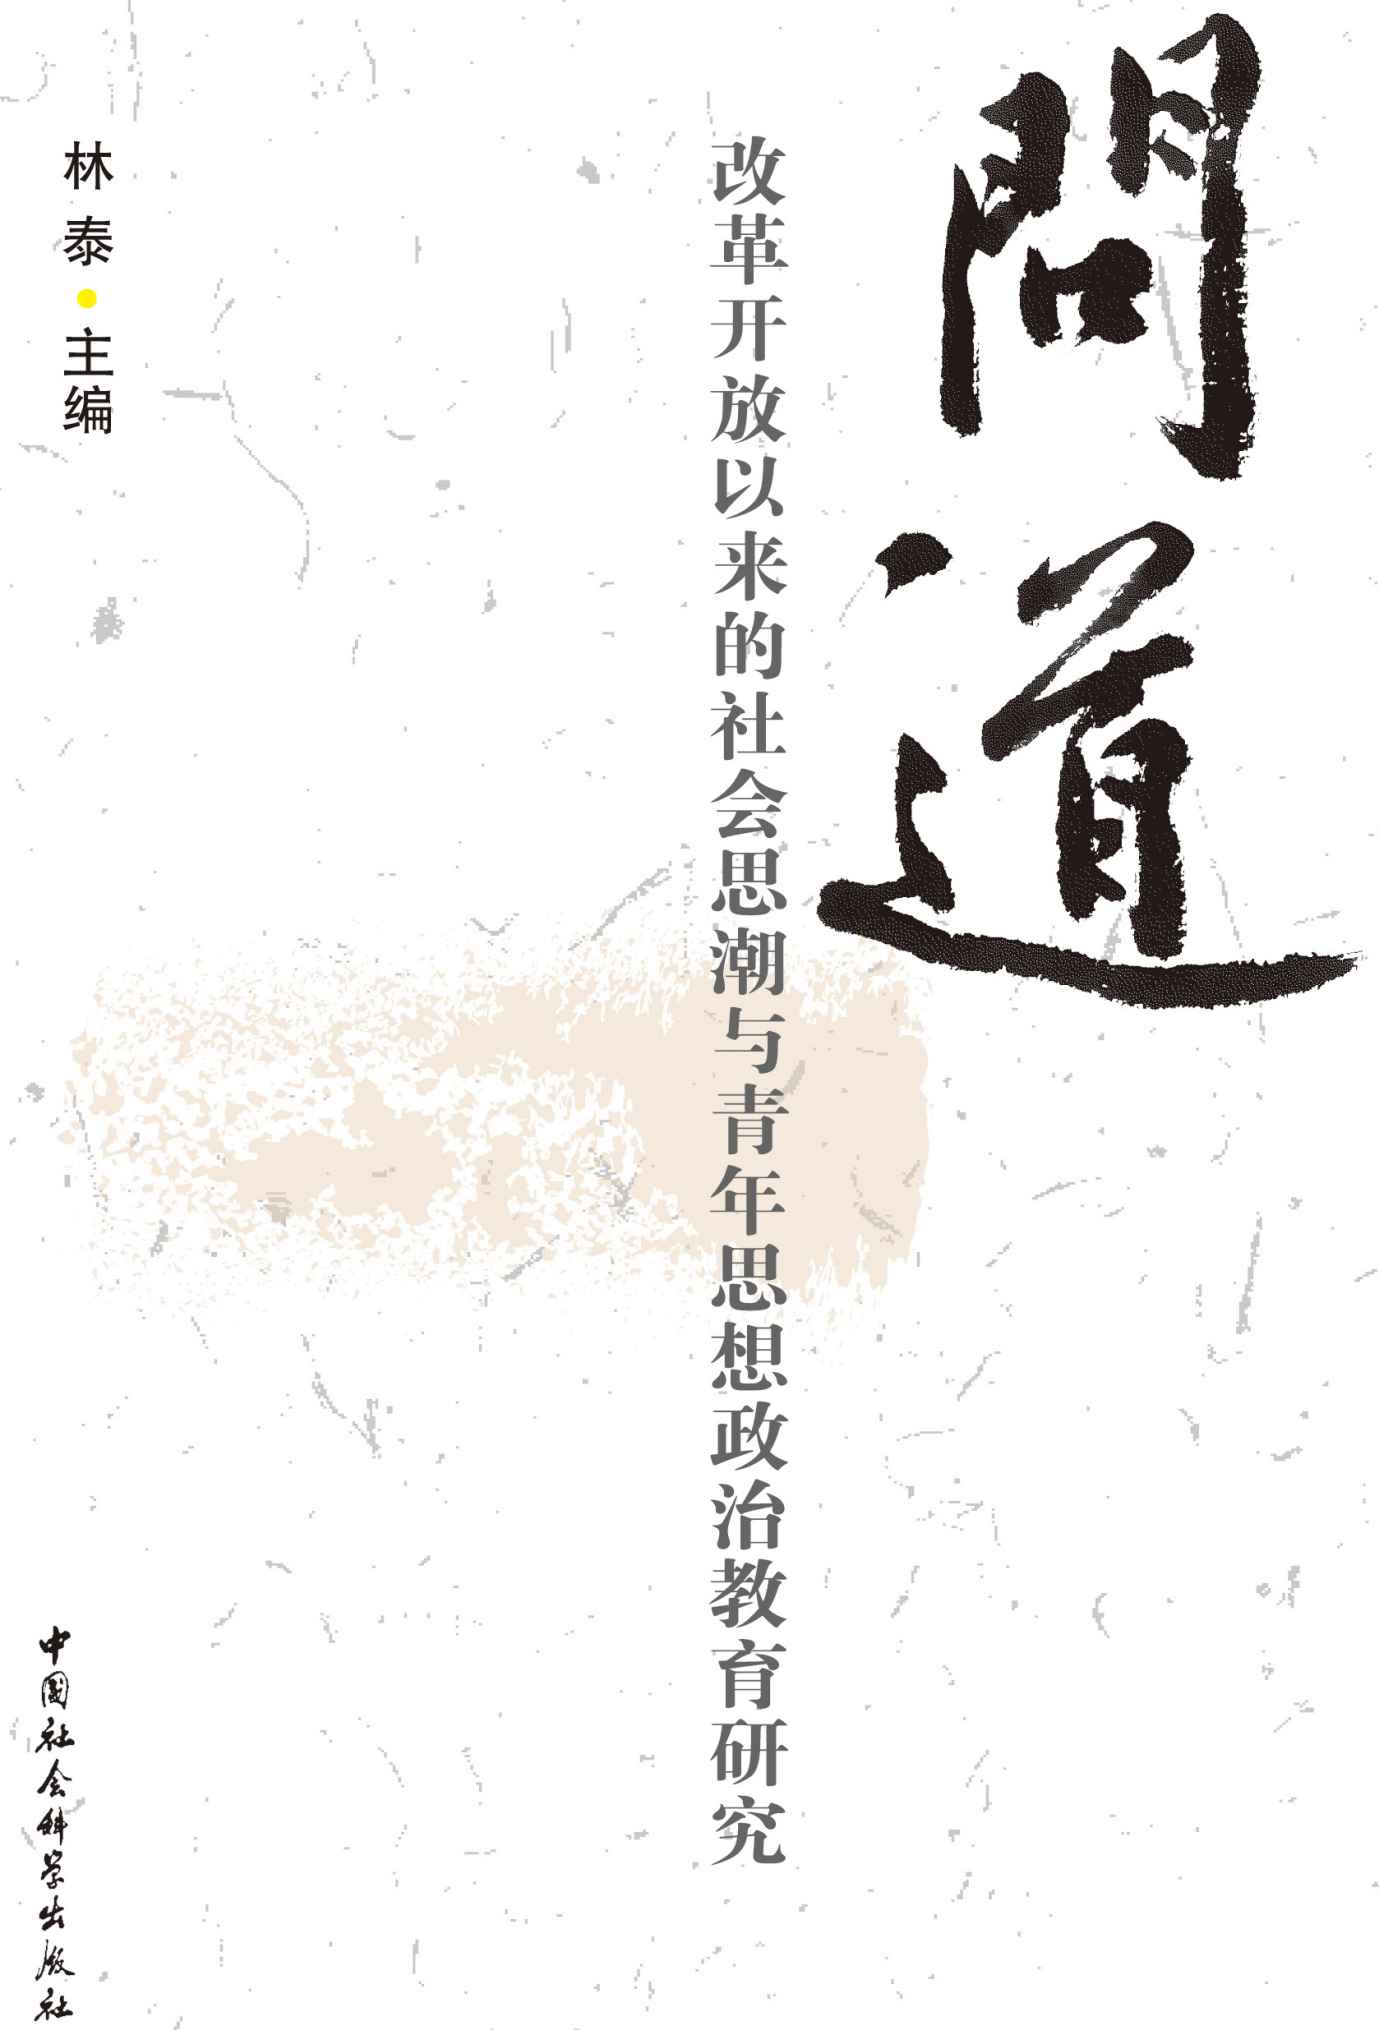 問道
改革开放以来的社会思潮与青年思想政治教育研究
林泰·主编
中國社会科学出版社